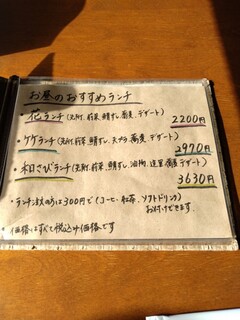 お昼のおすすめランチ
・花ランチ(先附、前菜、鯖すし、蕎麦、デザート)
2200円
・ケケランチ(先附、前菜、鯖すし、天ぷら蕎麦、デザート)
2970円
・和さびランチ(先附、前菜、鯖すし、油物、蕎麦、デザート)
3630円
・ランチの方は300円で(コーヒー、紅茶、ソフトドリンク)
お付けできます。
・価格はすべて税込み価格です